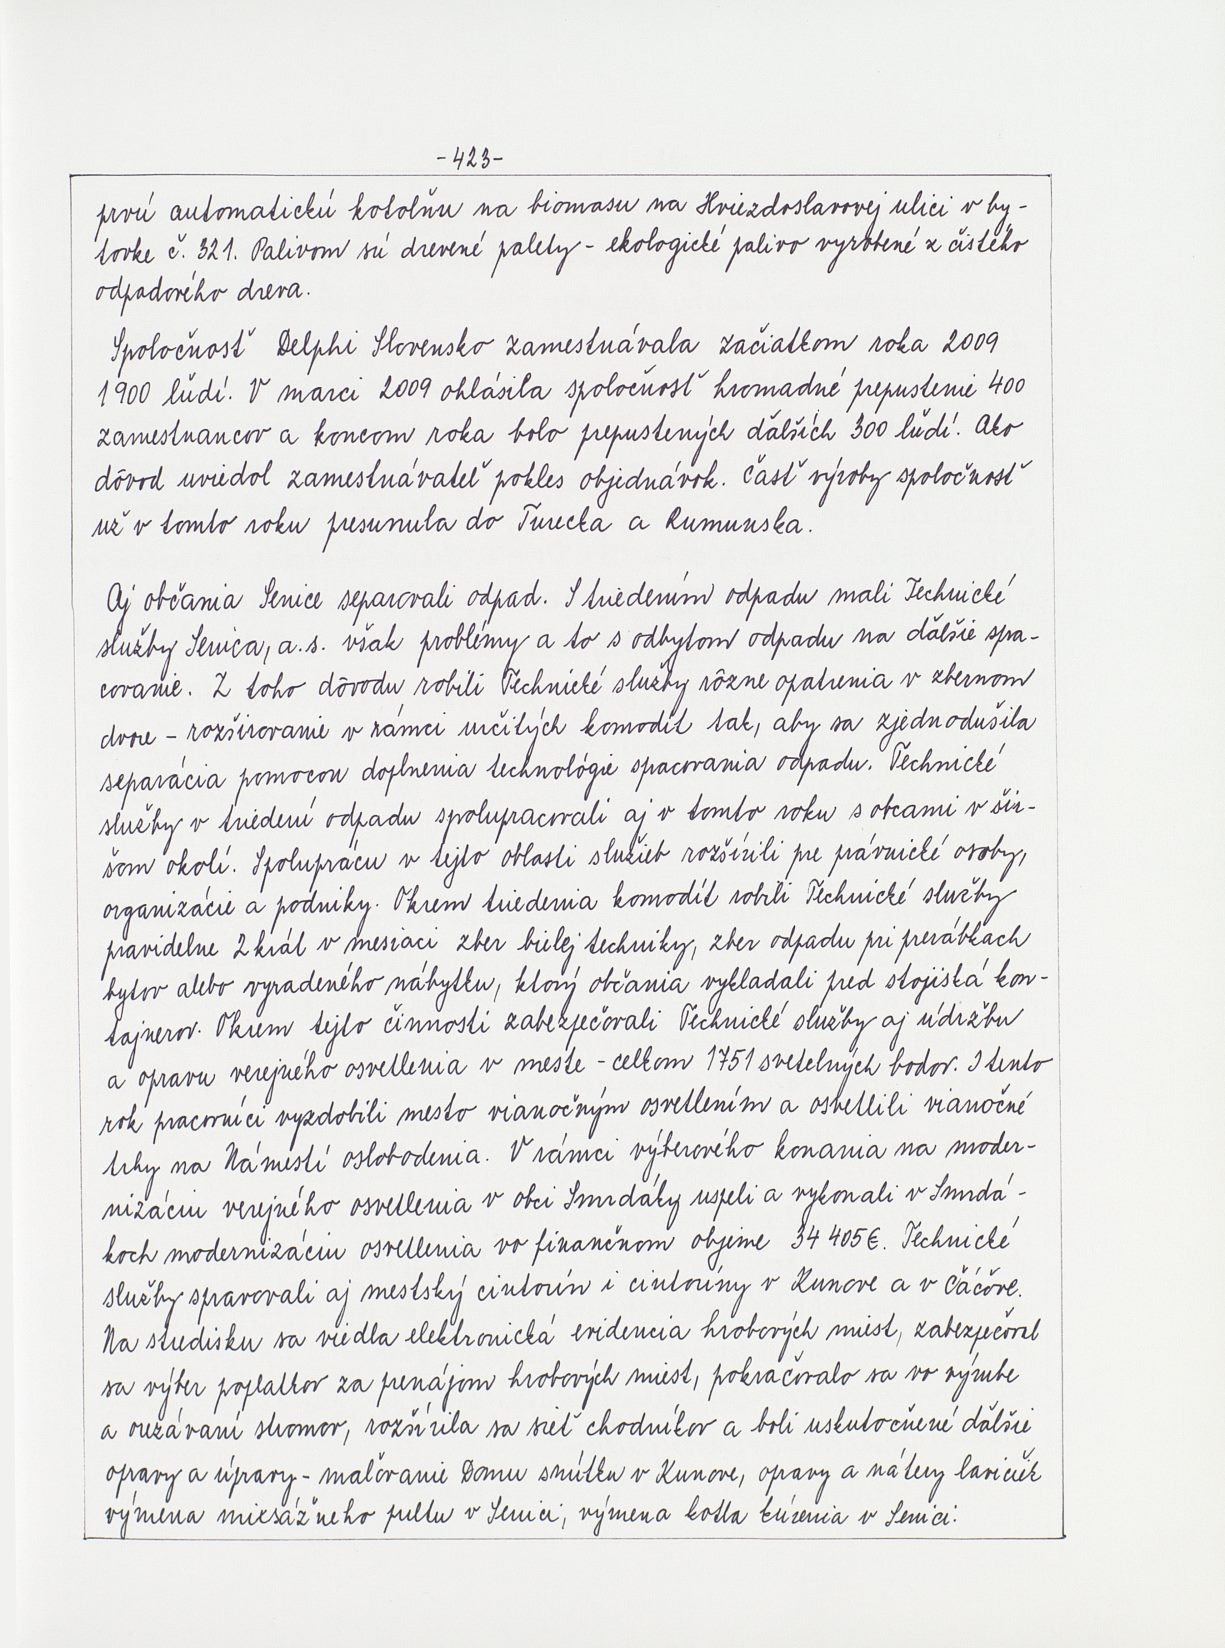 -423-
prvú automatickú kotolňu na biomasu na Hviezdoslavovej ulici v by-
tovke č. 321. Palivom sú drevené palety - ekologické palivo vyrobené z čistého
odpadového dreva.
Spoločnosť Delphi Slovensko zamestnávala začiatkom roka 2009
1900 ľudí. V marci 2009 ohlásila spoločnosť hromadné prepustenie 400
zamestnancov a koncom roka bolo prepustených ďalších 300 ľudí. Ako
dôvod uviedol zamestnávateľ pokles objednávok. Časť výroby spoločnosť
už v tomto roku presunula do Turecka a Rumunska.
Aj občania Senice separovali odpad. S triedením odpadu mali Technické
služby Senica, a.s. však problémy a to s odbytom odpadu na ďalšie spra-
covanie. Z toho dôvodu robili Technické služby rôzne opatrenia v zbernom
dvore - rozširovanie v rámci určitých komodít tak, aby sa zjednodušila
separácia pomocou doplnenia technológie spracovania odpadu. Technické
služby v triedení odpadu spolupracovali aj v tomto roku s obcami v šir-
šom okolí. Spoluprácu v tejto oblasti služieb rozšírili pre právnické osoby,
organizácie a podniky. Okrem triedenia komodít robili Technické služby
pravidelne 2 krát v mesiaci zber bielej techniky, zber odpadu pri prerábkach
bytov alebo vyradeného nábytku, ktorý občania vykladali pred stojiská kon-
tajnerov. Okrem tejto činnosti zabezpečovali Technické služby aj údržbu
a opravu verejného osvetlenia v meste - celkom 1751 svetelných bodov. I tento
rok pracovníci vyzdobili mesto vianočným osvetlením a osvetlili vianočné
trhy na Námestí oslobodenia. V rámci výberového konania na moder-
nizáciu verejného osvetlenia v obci Smrdáky uspeli a vykonali v Smrdá-
koch modernizáciu osvetlenia vo finančnom objeme 34 405€. Technické
služby spravovali aj mestský cintorín i cintoríny v Kunove a v Čáčove.
Na stredisku sa viedla elektronická evidencia hrobových miest, zabezpečoval
sa výber poplatkov za prenájom hrobových miest, pokračovalo sa vo výrube
a orezávaní stromov, rozšírila sa sieť chodníkov a boli uskutočnené ďalšie
opravy a úpravy - maľovanie Domu smútku v Kunove, opravy a nátery lavičiek
výmena mixsážneho pultu v Senici, výmena kotla kúrenia v Senici.